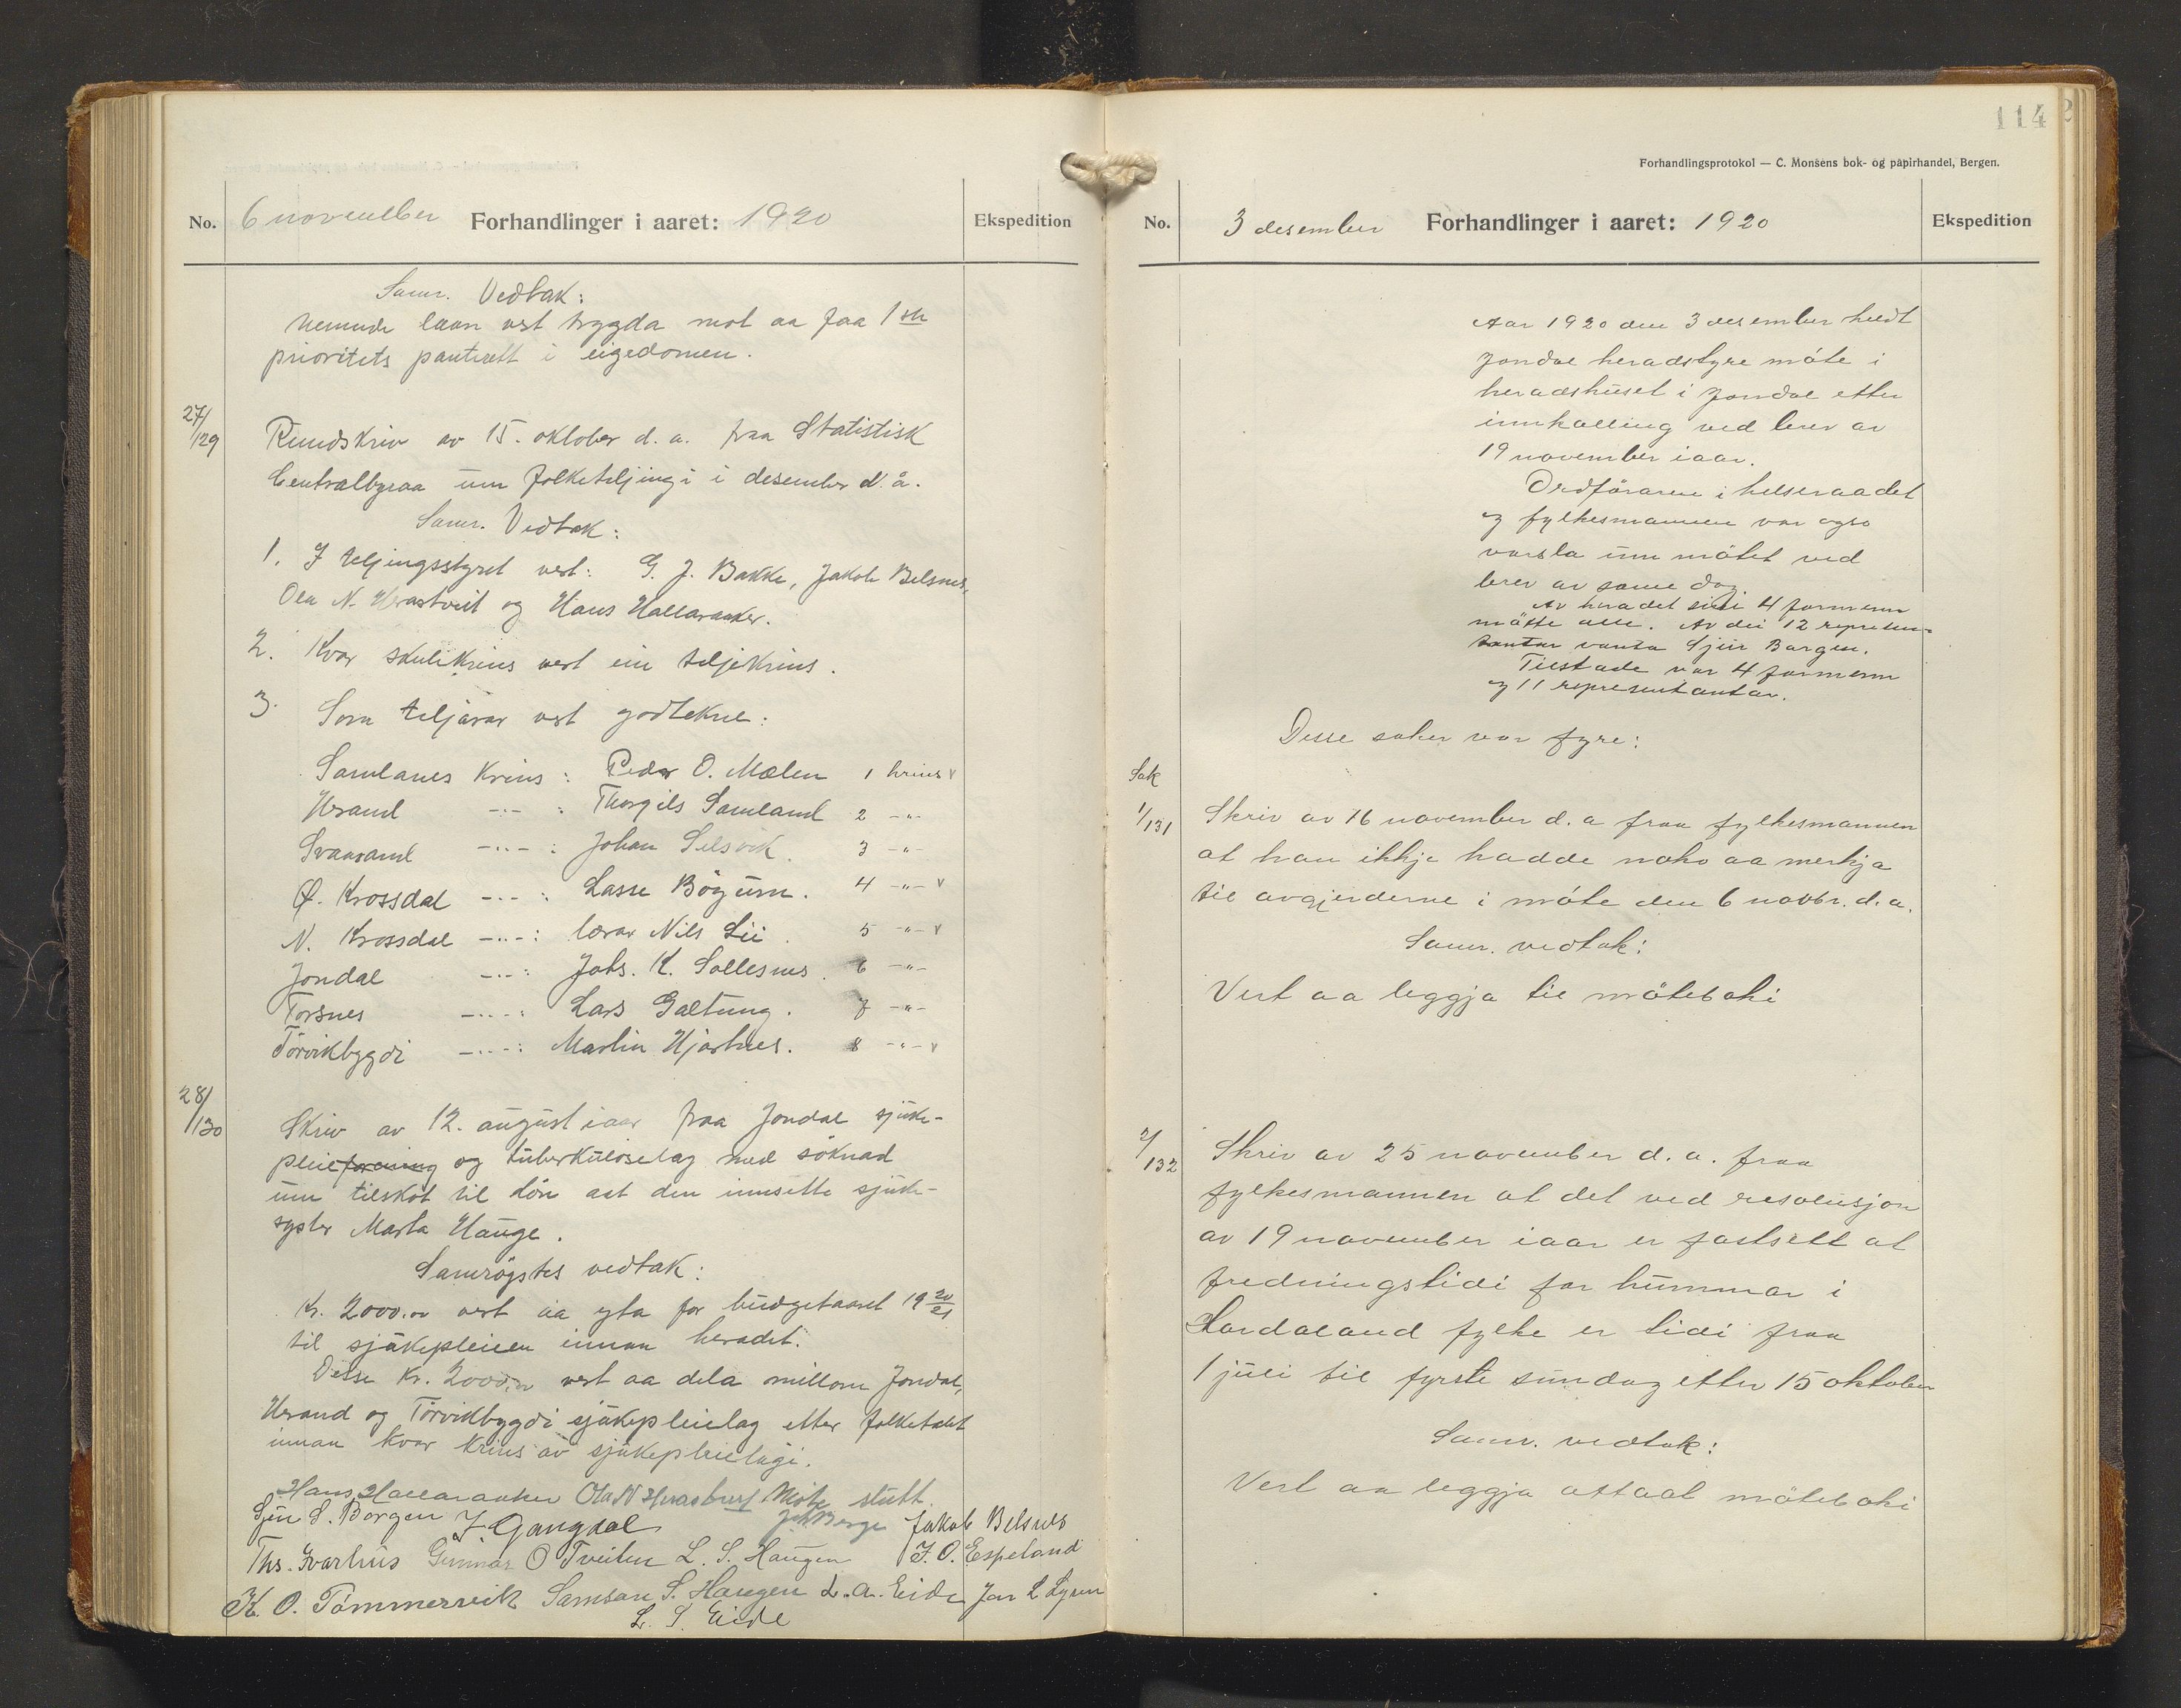 No. 6 november Forhandlinger i aaret: 1920 Ekspedition
Samr. Vedtak:
Nemnde laan vert trygda mot aa faa 1ste
prioritets panterett i eigedomen.
27/129
Rundskriv av 15. oktober d. a. fraa Statistisk
Centralbyraa um folketeljingi i desember d. å.
Samr. Vedtak:
1. I teljingsstyret vert: G. J. Bakke, Jakob Belsnes,
Ola N. Herastveit og Hans Hallaraaker.
2. Kvar skulekrins vert ein teljekrins.
3. Som teljarar vert godtekne:
Samlanes Krins: Peder O. Mælen 1 krins v
Herand -"- : Thorgils Samland 2 -"-
Svaasand -"- : Johan Selsvik. 3 -"-
Ø. Krossdal -"- : Lasse Bøgum. 4 -"- v
N. Krossdal -"- : lærar Nils Lii. 5 -"- v
Jondal -"- : Johs. K. Sollesnes. 6 -"-
Torsnes -"- : Lars Galtung. 7 -"-
Törvikbygdi -"- : Martin Hjartnes. 8 -"- v
28/130
Skriv av 12. august iaar fraa Jondal sjuke-
pleieforening og tuberkuloselag med söknad
um tilskot til lön aat den innsette sjuke-
syster Marta Hauge.
Samröystes vedtak:
Kr. 2000.00 vert aa yta for budgetaaret 1920/21
til sjukepleien innan heradet.
Desse Kr. 2000,00 vert aa dela millom Jondal,
Herand og Törvikbygdi sjukepleielag etter folketalet
innan kvar krins av sjukepleielagi.
Møte slutt.
Hans Hallaraaker Ola N Herastveit
Sjur S. Bargen J. Gangdal Joh Berge Jakob Belsnes
Ths. Kvarhus Gunnar O Tveiten L. S. Haugen J. O. Espeland
K. O. Tömmervik Samson S. Haugen L. A. Eide Jon L Lyren
L. S. Eide
114
Forhandlingsprotokol — C. Monsens bok- og papirhandel, Bergen.
No. 3 desember Forhandlinger i aaret: 1920 Ekspedition
Aar 1920 den 3 desember heldt
Jondal heradstyre möte i
heradshuset i Jondal etter
innkalling ved brev av
19 november iaar.
Ordföraren i helseraadet
og fylkesmannen var ogso
varsla um mötet ved
brev av same dag.
Av heradet sine 4 formenn
mötte alle. Av dei 12 represen-
tantar vanta Sjur Bargen.
Tilstade var 4 formenn
og 11 representantar.
Desse saker var fyre:
Sak
1/131
Skriv av 16 november d. a fraa fylkesmannen
at han ikkje hadde noko aa merkja
til avgjerderne i möte den 6 novbr. d. a.
Samr. vedtak:
Vert aa leggja til möteboki
2/132
Skriv av 25 november d. a. fraa
fylkesmannen at det ved resolusjon
av 19 november iaar er fastsett at
fredningstidi for hummar i
Hordaland fylke er tidi fraa
1 juli til fyrste sundag etter 15 oktober
Samr. vedtak:
Vert aa leggja attaat möteboki